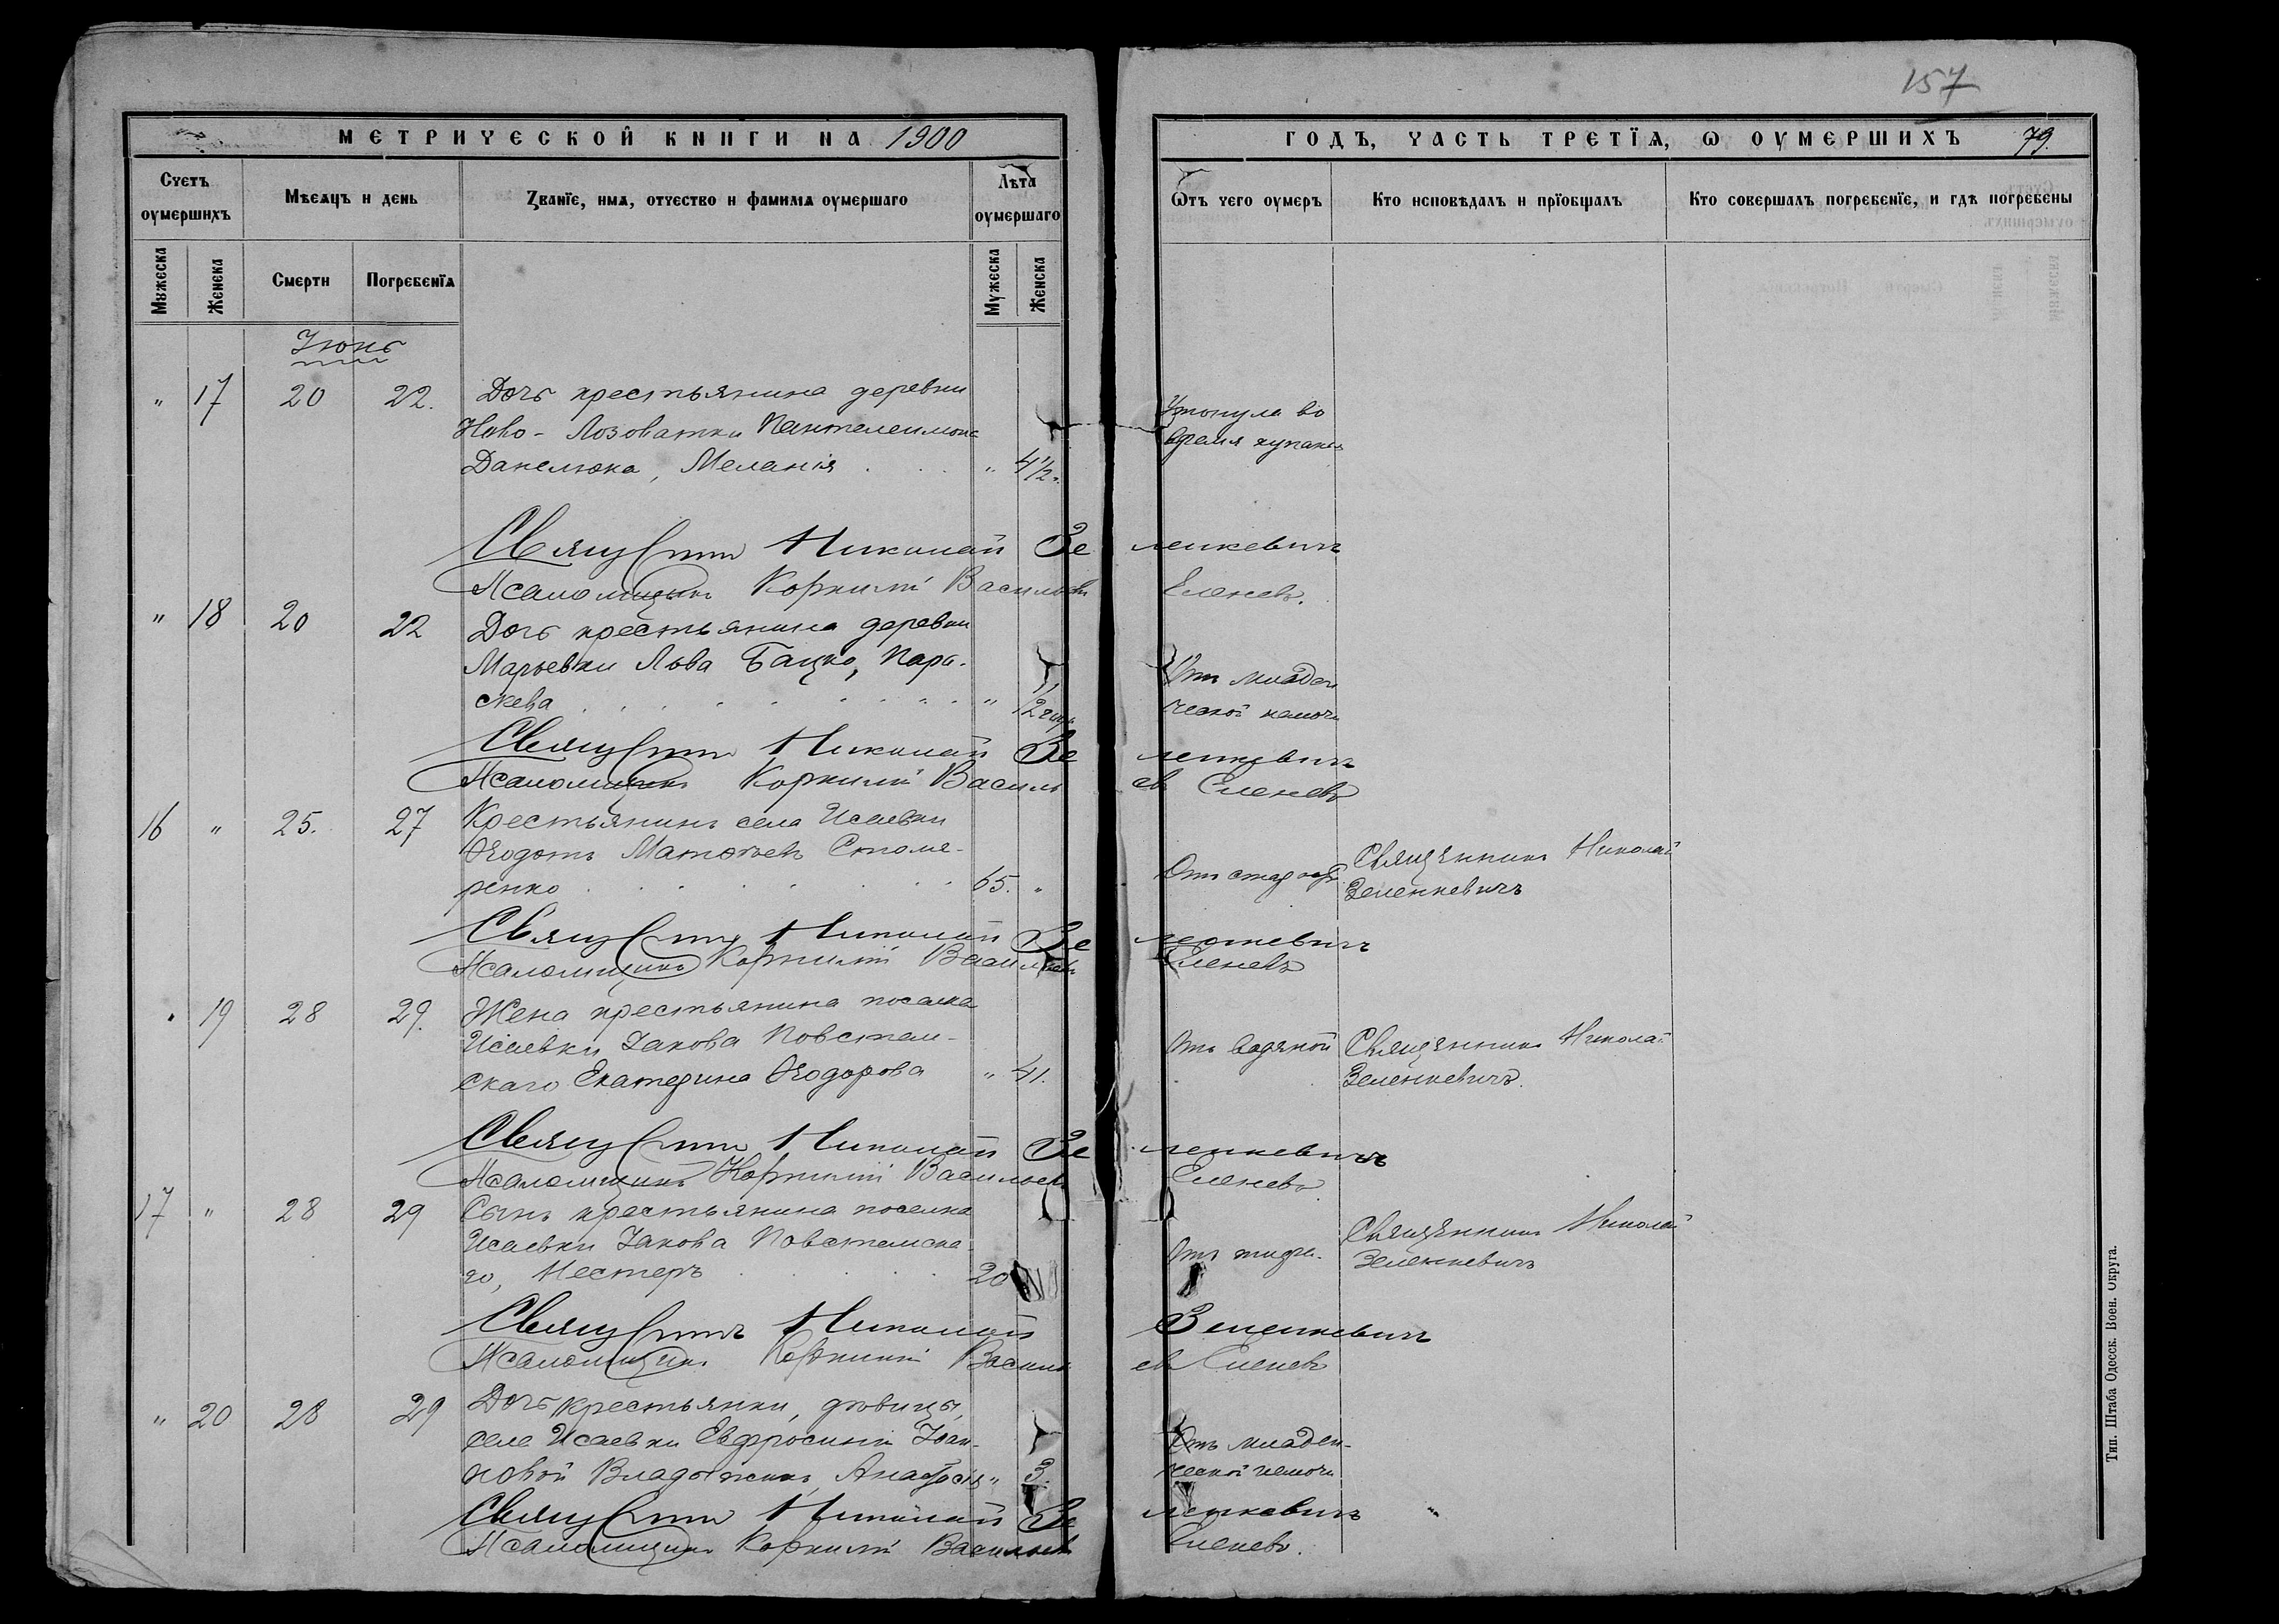 157
МЕТРИЧЕСКОЙ КНИГИ НА 1900
ГОДЪ, ЧАСТЬ ТРЕТЇѦ, Ѡ ОУМЕРШИХЪ 79.
Счетъ оумершихъ
Мѣсѧцъ и день
Званїе, имѧ, отчество и фамилїѧ оумершаго
Лѣта оумершаго
Ѿтъ чего оумеръ
Кто исповѣдалъ и прїобщалъ
Кто совершалъ погребенїе, и гдѣ погребены
Мужеска
Женска
Смерти
Погребенїѧ
Мужеска
Женска
Іюнь
" 17 20 22. Дочь крестьянина деревни
Ново-Лозоватки Пантелеимона
Данелюка, Меланія . . . " 4½ г.
Утонула во
время купанья
Свящ Николай Зеленкевичъ
Псаломщикъ Корнилій Васильевъ Еленевъ.
" 18 20 22 Дочь крестьянина деревни
Марьевки Льва Бацко, Пара-
скева . . . . . . . " ½ года
Отъ младен
ческой немочи
Свящ Николай Зеленкевичъ
Псаломщикъ Корнилій Васильевъ Еленевъ
16 " 25. 27 Крестьянинъ села Исаевки
Ѳеодотъ Матѳеевъ Столя-
ренко . . . . . . . 65. "
Отъ старости
Священникъ Николай
Зеленкевичъ
Свящ Николай Зеленкевичъ
Псаломщикъ Корнилій Васильевъ Еленевъ
" 19 28 29. Жена крестьянина поселка
Исаевки Іакова Повстан-
скаго Екатерина Ѳеодорова " 41.
Отъ водяной
Священникъ Николай
Зеленкевичъ.
Свящ Николай Зеленкевичъ
Псаломщикъ Корнилій Васильевъ Еленевъ
17 " 28 29 Сынъ крестьянина поселка
Исаевки Іакова Повстанска-
го, Нестеръ . . . . 20
Отъ тифа.
Священникъ Николай
Зеленкевичъ
Свящ Николай Зеленкевичъ
Псаломщикъ Корнилій Васильевъ Еленевъ
" 20 28 29 Дочь крестьянки, дѣвицы,
села Исаевки Евфросиніи Іоан-
новой Анастасія " 3.
Отъ младен-
ческой немочи
Свящ Николай Зеленкевичъ
Псаломщикъ Корнилій Васильевъ Еленевъ.
Тип. Штаба Одесск. Воен. Округа.